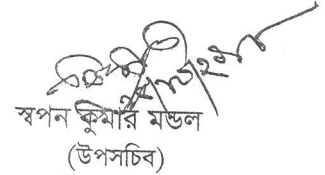 স্বপন কুমার মন্ডল
(উপসচিব)